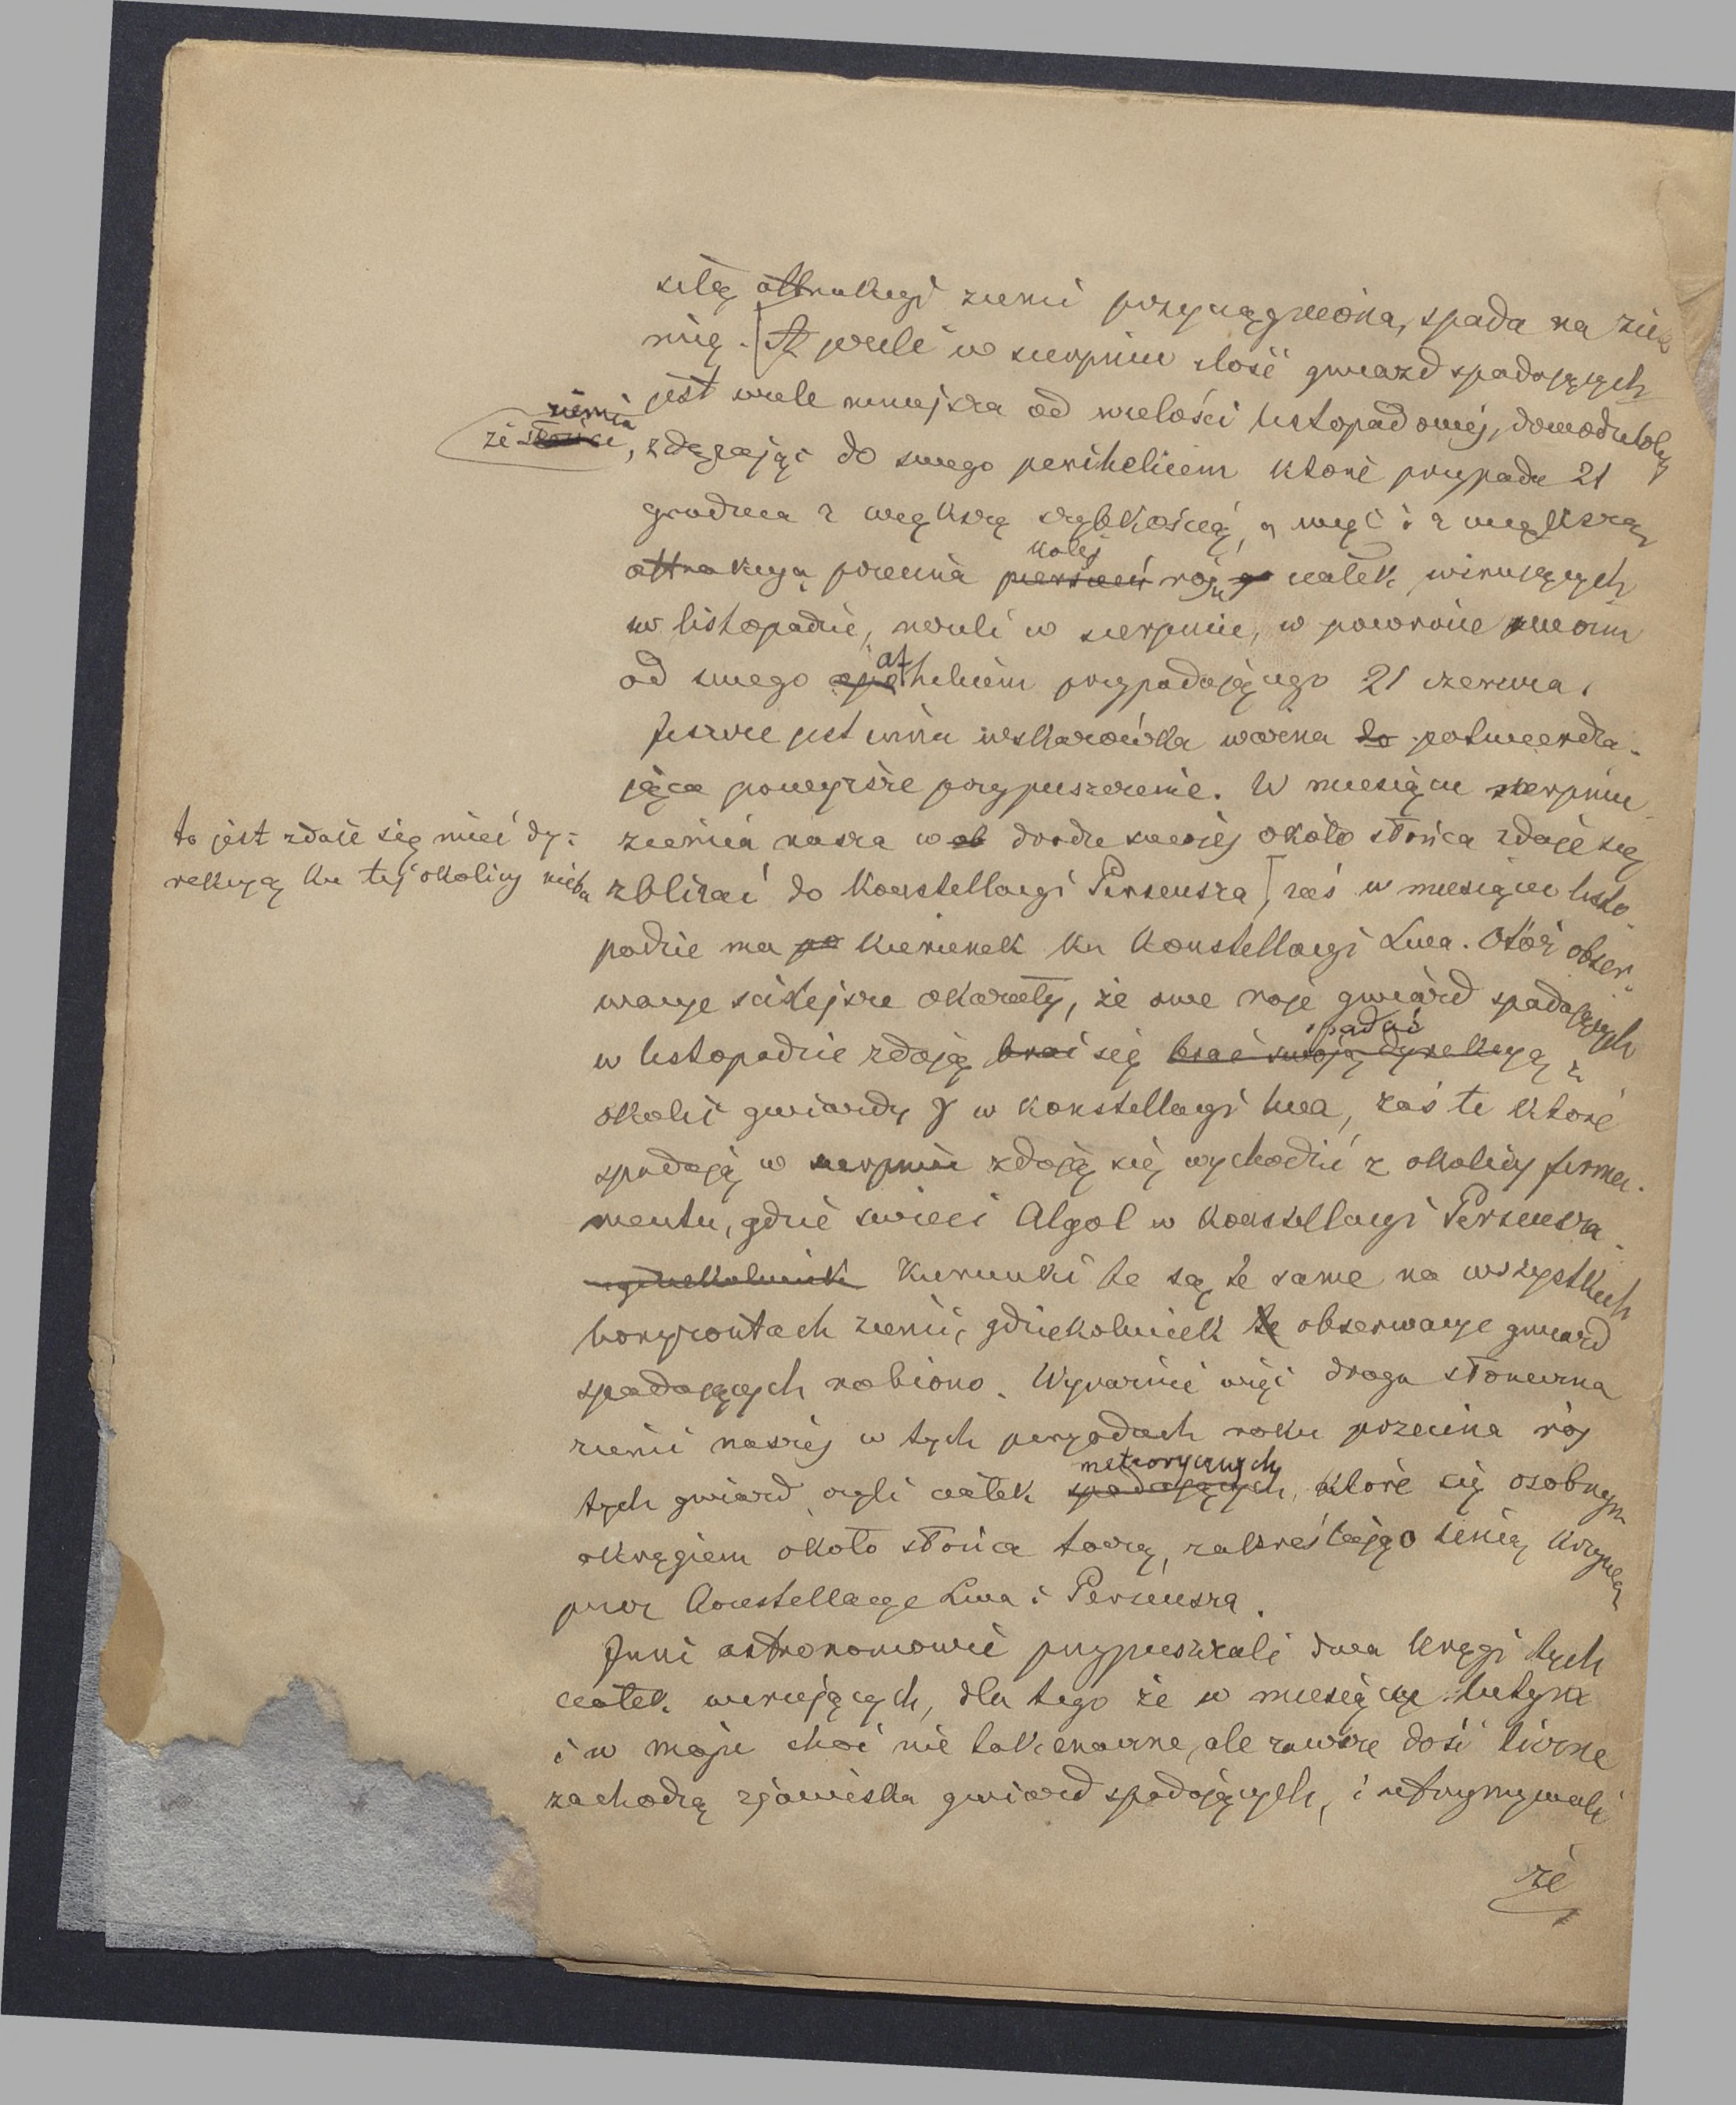 siłą attrakcyi ziemi przyciągniona, spada na zie
mię. A jeżeli w sierpniu ilość gwiazd spadających
jest wiele mniejsza od wielości listopadowéj, dowodziłoby
że ziemia, zdążając do swego perihelium które przypada 21
grudnia z większą szybkością, a więc i z większą
attrakcyą przecina kolej roju ciałek wirujących
w listopadzie, niżeli w sierpniu, w powrocie swoim
od swego athelium przypadającego 21 czerwca.
Jeszcze jest inna wskazówka ważna potwierdza-
jąca powyższe przypuszczenie. W miesiącu sierpniu
ziemia nasza w drodze swojéj około słońca zdaje się
zbliżać do Konstellacyi Perseusza
to jest zdaje się mieć dy-
rekcyą ku téj okolicy nieba
zaś w miesiącu listo-
padzie ma kierunek ku Konstellacyi Lwa. Otóż obser-
wacye ściślejsze okazały, że owe roje gwiazd spadających
w listopadzie zdają się spadać z
okolic gwiazdy γ w konstellacyi lwa, zaś te które
spadają w sierpniu zdają się wychodzić z okolicy firma-
mentu, gdzie świeci Algol w Konstellacyi Perseusza.
Kierunki te są te same na wszystkich
horyzontach ziemi, gdziekolwiek obserwacye gwiazd
spadających robiono. Wyraźnie więc droga słoneczna
ziemi naszéj w tych peryodach roku przecina rój
tych gwiazd czyli ciałek meteorycznych, które się osobnym
okręgiem około słońca toczą, zakreślając linią krzywą
przez Konstellacye Lwa i Perseusza.
Inni astronomowie przypuszczali dwa kręgi tych
ciałek wirujących, dla tego że w miesiącu lutym
i w maju choć nie tak znaczne, ale zawsze dość liczne
zachodzą zjawiska gwiazd spadających, i utrzymywali
że